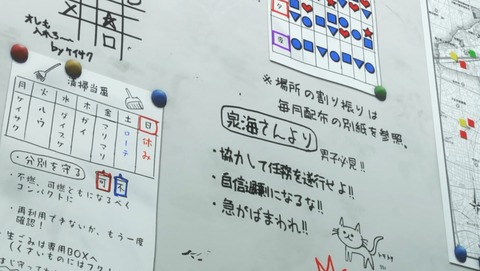 オレも
入れろ〜
byケイサク
清掃当番
月 火 水 木 金 土 日
ケイサク
ルウ
ダイスケ
ガイ
マリマリ
ローテ
休み
・分別を守る
可 不
・不燃、可燃ともになるべく
コンパクトに
・再利用できないか、もう一度
確認!
・生ごみは専用BOXへ
(くさいものにはフタ!
※場所の割り振りは
毎月配布の別紙を参照。
泉海さんより 男子必見!!
・協力して任務を遂行せよ!!
・自信過剰になるな!!
・急がばまわれ!!